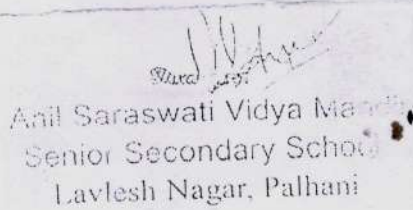 Anil Saraswati Vidya Mandir
Senior Secondary School
Lavlesh Nagar, Palhani